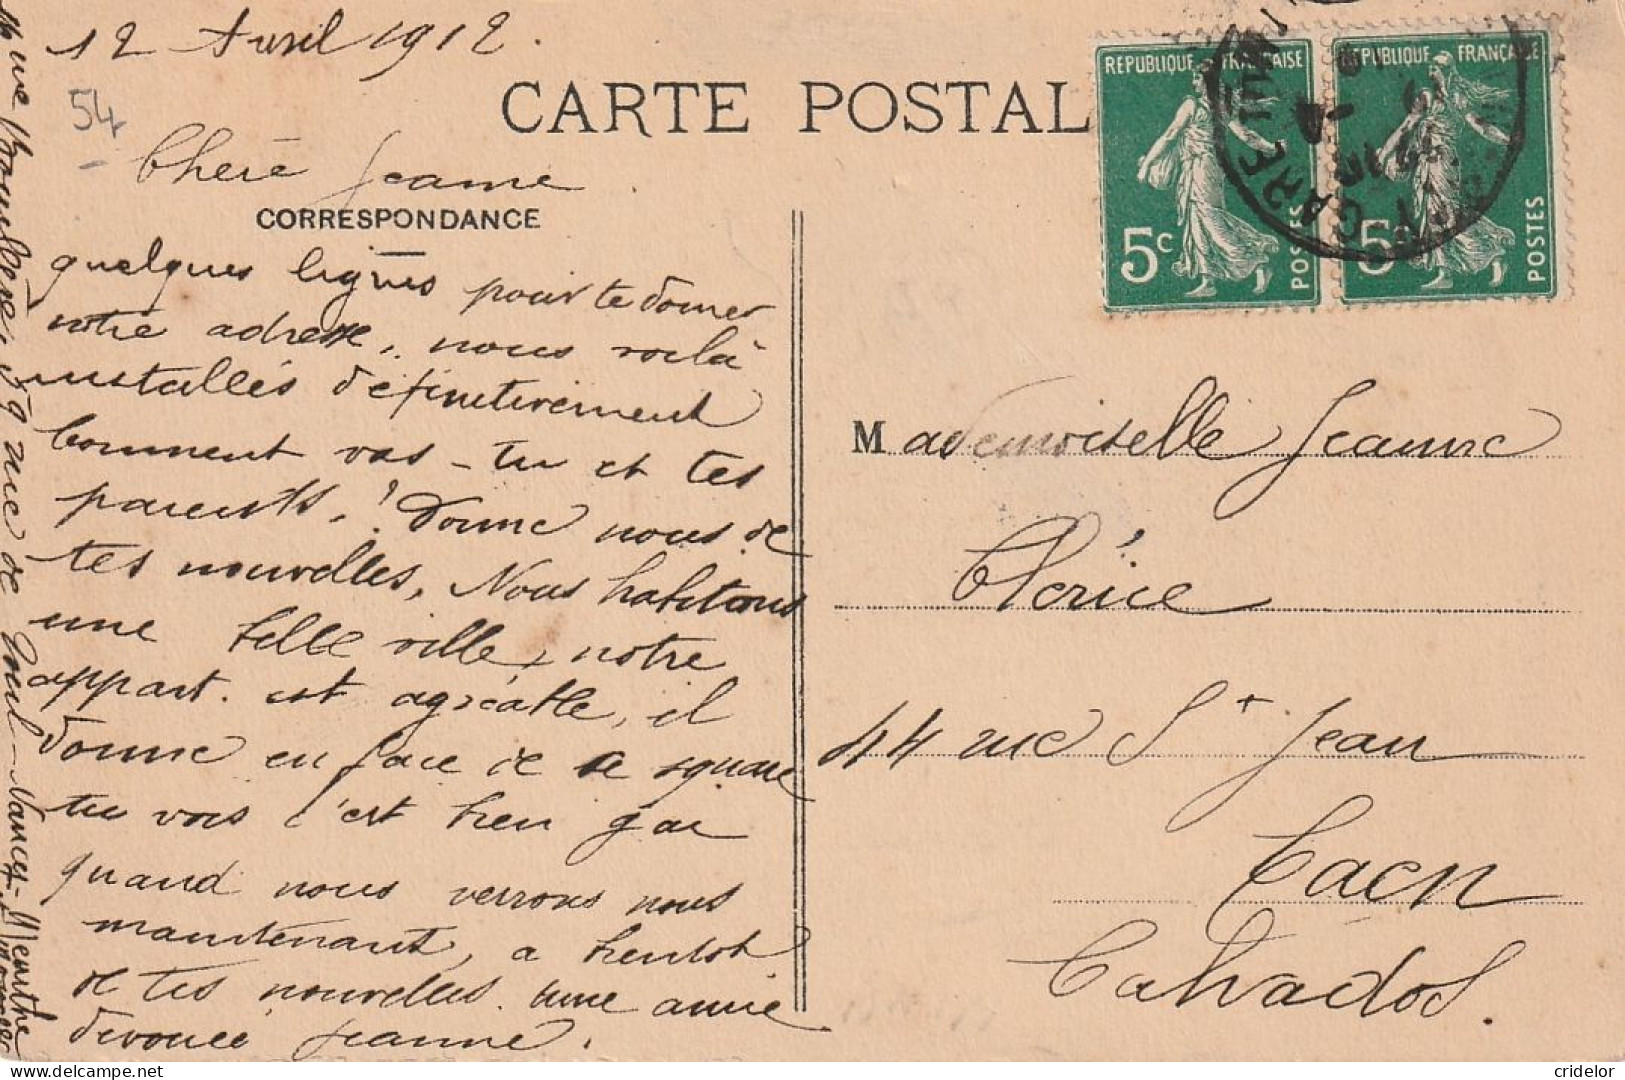 12 Avril 1912.
54
CARTE POSTAL
REPUBLIQUE FRANÇAISE
5c
POSTES
REPUBLIQUE FRANÇAISE
5c
POSTES
GARE
Chère Jeanne.
CORRESPONDANCE
quelques lignes pour te donner
notre adresse, nous voilà
installés définitivement
Comment vas-tu et tes
parents,! Donne nous de
tes nouvelles, Nous habitons
une belle ville, notre
appart. est agréable, il
donne en face de le square
tu vois c'est bien gai
quand nous verrons nous
maintenant, a bientot
de tes nouvelles. une amie
dévouée Jeanne.
rue de Toul - Nancy - Meurthe
Mademoiselle Jeanne
Clérice
44 rue St Jean
Caen
Calvados.
cridelor